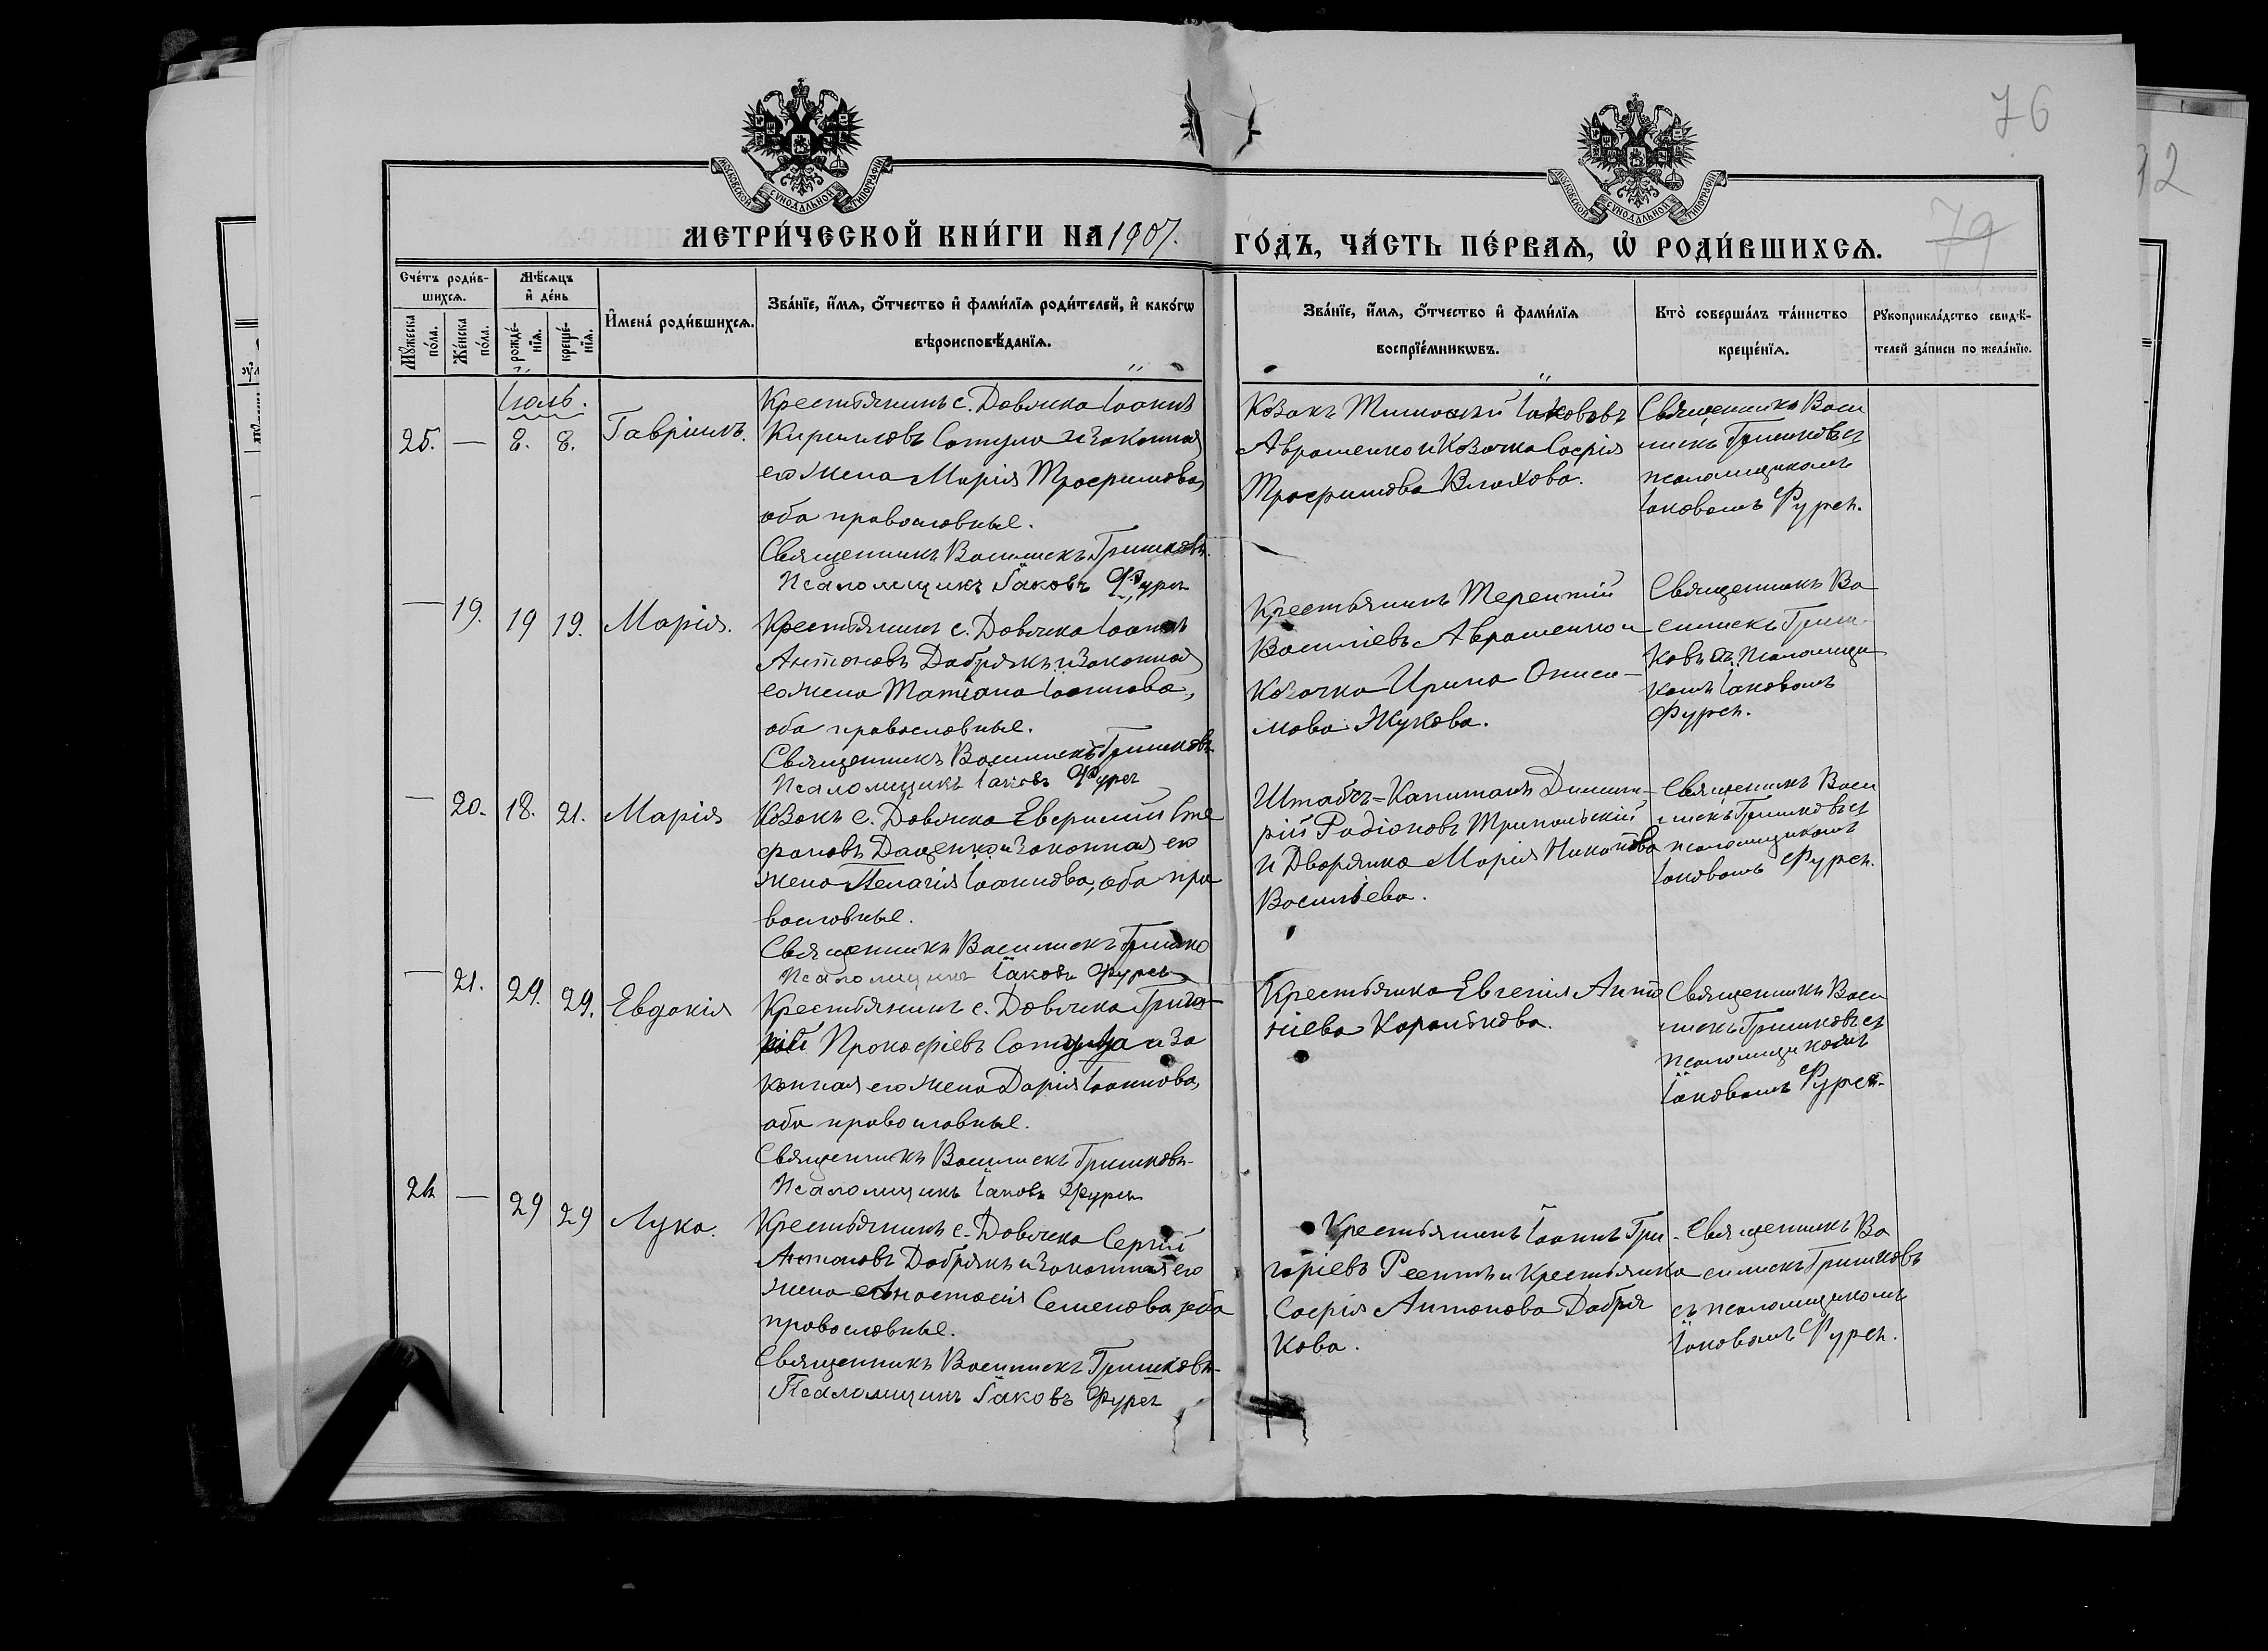 76
32
79
МЕТРИ́ЧЕСКОЙ КНИ́ГИ НА 1907.
ГО́ДЪ, ЧА́СТЬ ПЕ́РВАѦ, Ѡ҆ РОДИ́ВШИХСѦ.
Сче́тъ роди́в-
шихсѧ.
Мꙋ́жеска по́ла.
Же́нска по́ла.
Мѣ́сѧцъ
и҆ де́нь
рожде́-
нїѧ.
креще́-
нїѧ.
И҆мена́ роди́вшихсѧ.
Зва́нїе, и҆́мѧ, ѻ҆́тчество и҆ фами́лїѧ роди́телей, и҆ како́гѡ
вѣроисповѣ́данїѧ.
Зва́нїе, и҆́мѧ, ѻ҆́тчество и҆ фами́лїѧ
воспрїе́мникѡвъ.
Кто̀ соверша́лъ та́инство
креще́нїѧ.
Рꙋкоприкла́дство свидѣ́-
телей за́писи по жела́нїю.
Іюль.
25. — 8. 8. Гавріилъ.
Крестьянинъ с. Довжика Іоаннъ
Кирилловъ Сотула и законная
его жена Марія Трофимова,
оба православные.
Священникъ Василискъ Гришковъ.
Псаломщикъ Іаковъ Фурсъ
Козакъ Тимоѳей Іаковлевъ
Аврошенко и Козачка Софія
Трофимова Влахова.
Священникъ Васи
лискъ Гришковъ съ
псаломщикомъ
Іаковомъ Фурсъ.
— 19. 19 19. Марія.
Крестьянинъ с. Довжика Іоаннъ
Антоновъ Добрякъ и законная
его жена Татіана Іоаннова,
оба православные.
Священникъ Василискъ Гришковъ
Псаломщикъ Іаковъ Фурсъ
Крестьянинъ Терентій
Василіевъ Аврошенко и
козачка Ирина Ониси-
мова Жукова.
Священникъ Ва
силискъ Гриш-
ковъ съ псаломщи
комъ Іаковомъ
Фурсъ.
— 20. 18. 21. Марія
Козакъ с. Довжика Евфимій Сте
фановъ Даценко и законная его
жена Пелагія Іоаннова, оба пра
вославные.
Священникъ Василискъ Гришко
Псаломщикъ Іаковъ Фурсъ
Штабсъ-Капитанъ Димит-
рій Родіоновъ Трипольскій
и Дворянка Марія Никонова
Васильева.
Священникъ Васи
лискъ Гришковъ съ
псаломщикомъ
Іаковомъ Фурсъ.
— 21. 29. 29. Евдокія
Крестьянинъ с. Довжика Григо-
рій Прокофіевъ Сотула и за
конная его жена Дарія Іоаннова,
оба православные.
Священникъ Василискъ Гришковъ
Псаломщикъ Іаковъ Фурсъ
Крестьянка Евгенія Анто
ніева Каранькова.
Священникъ Васи
лискъ Гришковъ съ
псаломщикомъ
Іаковомъ Фурсъ.
— 29 29 Лука.
Крестьянинъ с. Довжика Сергій
Антоновъ Добрякъ и законная его
жена Анастасія Семенова, оба
православные.
Священникъ Василискъ Гришковъ
Псаломщикъ Іаковъ Фурсъ
Крестьянинъ Іоаннъ Гри-
горіевъ Реентъ и крестьянка
Софія Антонова Добря
кова.
Священникъ Ва
силискъ Гришковъ
съ псаломщикомъ
Іаковомъ Фурсъ.